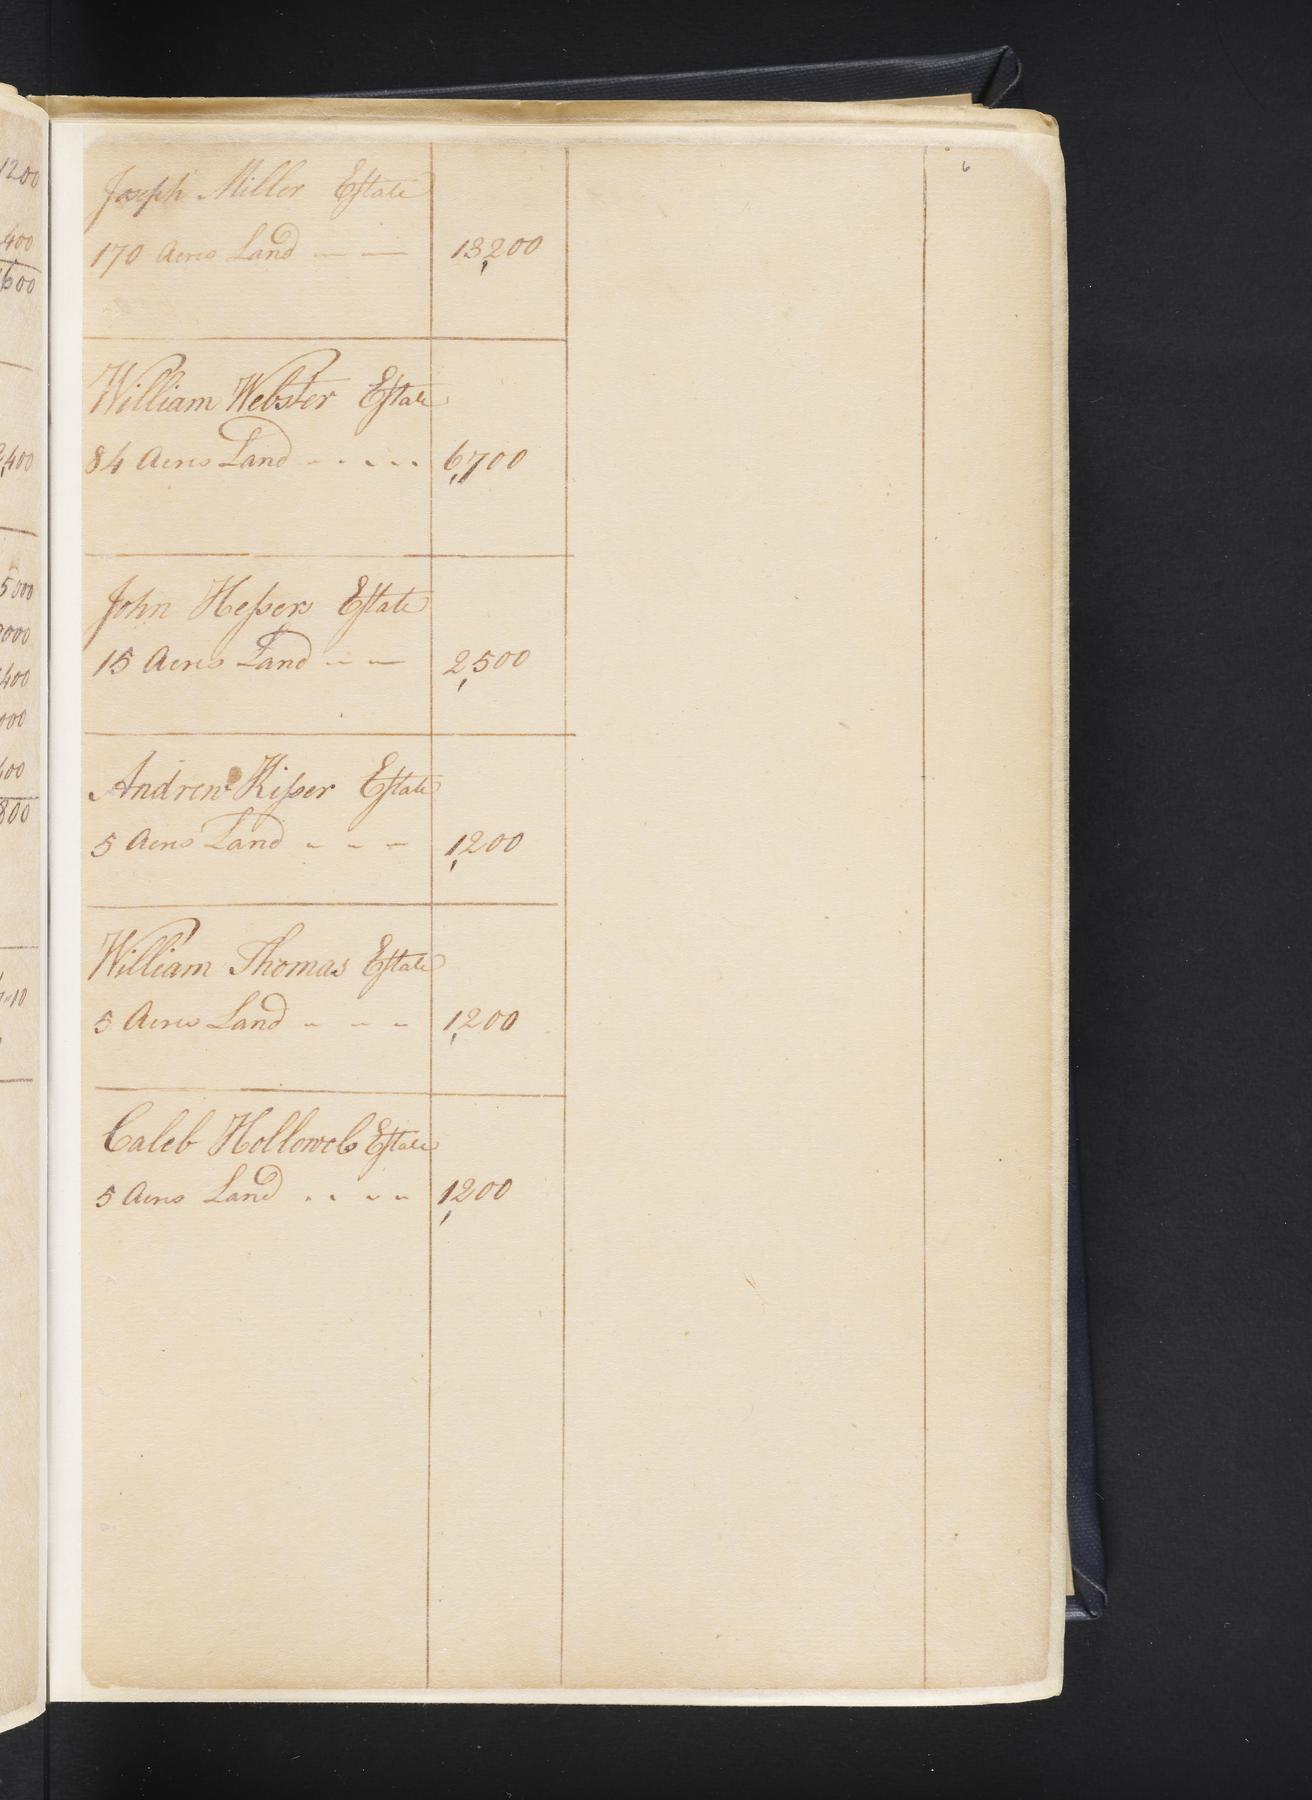 6
Joseph Miller Estate
170 Acres Land — — 13,200
William Webster Estate
84 Acres Land - - - - 6,700
John Hesser Estate
15 Acres Land — — 2,500
Andrew Kisser Estate
5 Acres Land - - - 1,200
William Thomas Estate
5 Acres Land - - - 1,200
Caleb Hollowel Estate
5 Acres Land - - - - 1,200
1200
400
600
,400
5000
000
400
000
400
800
10